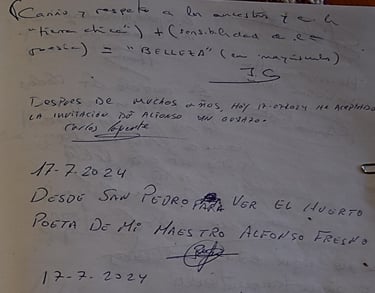 Cariño y respeto a los ancestros y a la
"tierra chica") + (sensibilidad de la
poesía) = "BELLEZA" (en mayúsculas)
J.G
DESPUES DE MUCHOS AÑOS, HOY 17-07-2024 HE ACEPTADO
LA INVITACIÓN DE ALFONSO UN GUSAZO.
Carlos
17-7-2024
DESDE SAN PEDRO PARA VER EL HUERTO
POETA DE MI MAESTRO ALFONSO FRESNO
17-7-2024